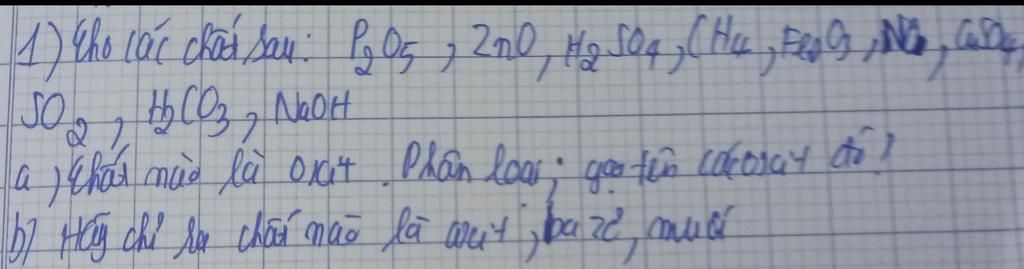 1) Cho các chất sau: P2O5, ZnO, H2SO4, CH4, Fe2O3, N2, CuSO4,
SO2, H2CO3, NaOH
a) Chất nào là oxit. Phân loại; gọi tên các oxit đó?
b) Hãy chỉ ra chất nào là axit, ba zơ, muối